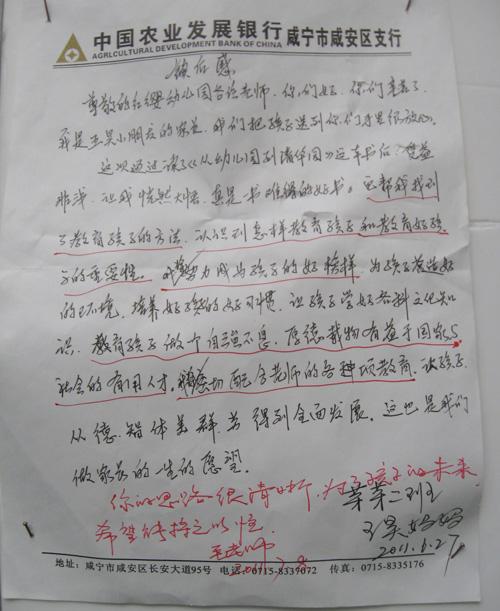 中国农业发展银行 咸宁市咸安区支行
AGRLCULTURAL DEVELOPMENT BANK OF CHINA
读后感
尊敬的红缨幼儿园各位老师,你们好,你们辛苦了
我是王昊小朋友的家长,我们把孩子送到你们这里很放心。
这次通过读了《从幼儿园到清华园》这本书后,受益
非浅,让我恍然大悟,真是一书难得的好书。它帮我找到
了教育孩子的方法,认识到怎样教育孩子和教育好孩
子的重要性。努力成为孩子的好榜样,为孩子营造好
的环境,培养好孩子的好习惯,让孩子学好各科文化知
识,教育孩子做个自强不息,厚德载物有益于国家与
社会的有用人才,切配合老师的各种项教育,让孩子
从德、智体美群劳得到全面发展。这也是我们
做家长的一生的愿望。
你的思路很清晰,为了孩子的未来
希望能持之以恒。
莘莘二班
王昊妈妈
2011.6.27
毛老师
2011.7.8
地址:咸宁市咸安区长安大道95号 电话:0715-8337072 传真:0715-8335176